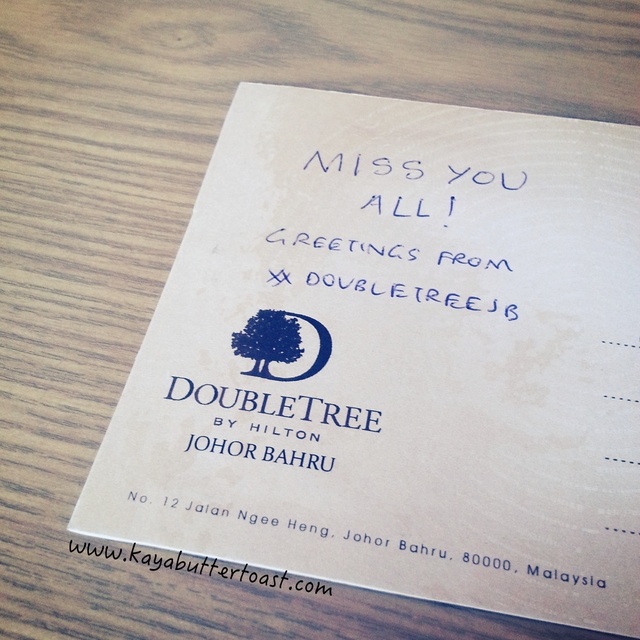 MISS YOU
ALL!
GREETINGS FROM
# DOUBLETREEJB
DOUBLETREE
BY HILTON
JOHOR BAHRU
No. 12 Jalan Ngee Heng, Johor Bahru, 80000, Malaysia
www.kayabuttertoast.com